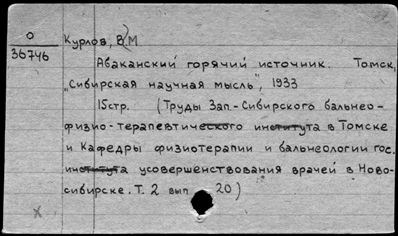 0
36746
Курлов, В.М
Абаканский горячий источник. Томск,
"Сибирская научная мысль", 1933
15стр. (Труды Зап.-Сибирского бальнео-
физио-терапевтического института в Томске
и Кафедры физиотерапии и бальнеологии гос.
института усовершенствования врачей в Ново-
сибирске. Т. 2 вып 20)